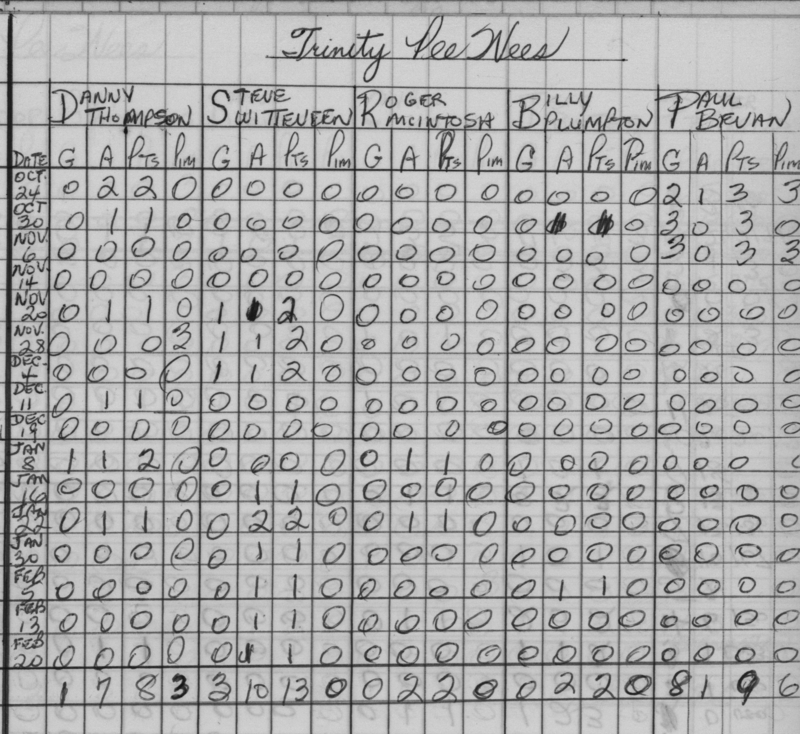 Trinity Pee Wees
DANNY THOMPSON STEVE WITTEVEEN ROGER MCINTOSH BILLY PLUMPTON PAUL BEVAN
DATE G A PTS PIM G A PTS PIM G A PTS PIM G A PTS PIM G A PTS PIM
OCT. 24 0 2 2 0 0 0 0 0 0 0 0 0 0 0 0 0 2 1 3 3
OCT 30 0 1 1 0 0 0 0 0 0 0 0 0 0 1 1 0 3 0 3 0
NOV. 6 0 0 0 0 0 0 0 0 0 0 0 0 0 0 0 0 3 0 3 3
NOV. 14 0 0 0 0 0 0 0 0 0 0 0 0 0 0 0 0 0 0 0 0
NOV 20 0 1 1 0 1 1 2 0 0 0 0 0 0 0 0 0 0 0 0 0
NOV. 28 0 0 0 3 1 1 2 0 0 0 0 0 0 0 0 0 0 0 0 0
DEC. 4 0 0 0 0 1 1 2 0 0 0 0 0 0 0 0 0 0 0 0 0
DEC. 11 0 1 1 0 0 0 0 0 0 0 0 0 0 0 0 0 0 0 0 0
DEC 19 0 0 0 0 0 0 0 0 0 0 0 0 0 0 0 0 0 0 0 0
JAN 8 1 1 2 0 0 0 0 0 0 1 1 0 0 0 0 0 0 0 0
JAN 16 0 0 0 0 0 1 1 0 0 0 0 0 0 0 0 0 0 0 0 0
JAN 22 0 1 1 0 0 2 2 0 0 1 1 0 0 0 0 0 0 0 0 0
JAN 30 0 0 0 0 0 1 1 0 0 0 0 0 0 0 0 0 0 0 0 0
FEB 5 0 0 0 0 0 1 1 0 0 0 0 0 0 1 1 0 0 0 0 0
FEB 13 0 0 0 0 0 1 1 0 0 0 0 0 0 0 0 0 0 0 0 0
FEB 20 0 0 0 0 0 1 1 0 0 0 0 0 0 0 0 0 0 0 0 0
1 7 8 3 3 10 13 0 0 2 2 0 0 2 2 0 8 1 9 6